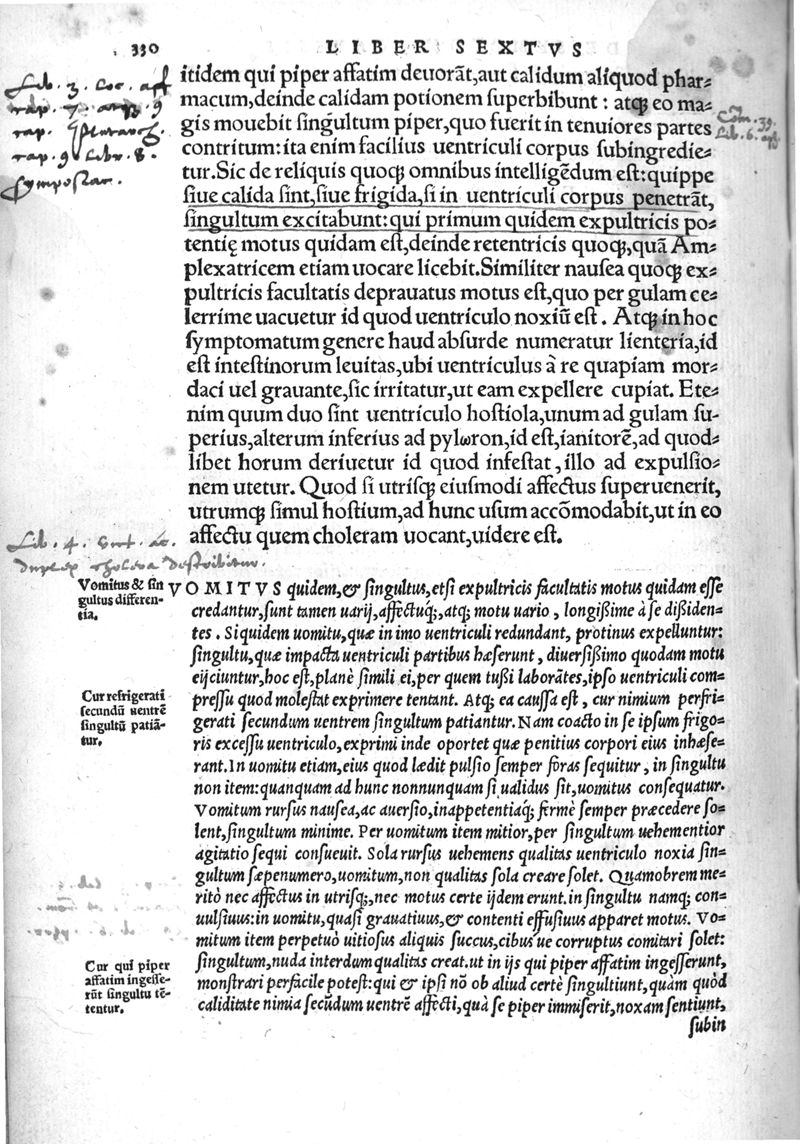 330
LIBER SEXTVS
itidem qui piper affatim deuorāt, aut calidum aliquod phar-
macum, deinde calidam potionem superbibunt : atq; eo ma-
gis mouebit singultum piper, quo fuerit in tenuiores partes
contritum: ita enim facilius uentriculi corpus subingredie-
tur. Sic de reliquis quoq; omnibus intelligēdum est: quippe
siue calida sint, siue frigida, si in uentriculi corpus penetrāt,
singultum excitabunt: qui primum quidem expultricis po-
tentię motus quidam est, deinde retentricis quoq;, quā Am-
plexatricem etiam uocare licebit. Similiter nausea quoq; ex-
pultricis facultatis deprauatus motus est, quo per gulam ce-
lerrime uacuetur id quod uentriculo noxiū est. Atq; in hoc
symptomatum genere haud absurde numeratur lienteria, id
est intestinorum leuitas, ubi uentriculus à re quapiam mor-
daci uel grauante, sic irritatur, ut eam expellere cupiat. Ete-
nim quum duo sint uentriculo hostiola, unum ad gulam su-
perius, alterum inferius ad pylωron, id est, ianitorē, ad quod-
libet horum deriuetur id quod infestat, illo ad expulsio-
nem utetur. Quod si utrisq; eiusmodi affectus superuenerit,
utrumq; simul hostium, ad hunc usum accōmodabit, ut in eo
affectu quem choleram uocant, uidere est.
Lib. 3. Loc. aff
cap. 7.
cap.
cap. 9. Libr. 8.
Symposiac.
Com. 39.
Lib. 6.
Lib. 4.
duplex cholera describitur.
Vomitus & sin
gultus differen-
tia.
VOMITVS quidem, & singultus, etsi expultricis facultatis motus quidam esse
credantur, sunt tamen uarij, affectuq;, atq; motu uario, longißime à se dißiden-
tes. Siquidem uomitu, quæ in imo uentriculi redundant, protinus expelluntur:
singultu, quæ impacta uentriculi partibus hæserunt, diuersißimo quodam motu
eijciuntur, hoc est, planè simili ei, per quem tußi laborātes, ipso uentriculi com-
pressu quod molestat exprimere tentant. Atq; ea caussa est, cur nimium perfri-
gerati secundum uentrem singultum patiantur. Nam coacto in se ipsum frigo-
ris excessu uentriculo, exprimi inde oportet quæ penitius corpori eius inhæse-
rant. In uomitu etiam, eius quod lædit pulsio semper foras sequitur, in singultu
non item: quanquam ad hunc nonnunquam si ualidus sit, uomitus consequatur.
Vomitum rursus nausea, ac auersio, inappetentiaq; fermè semper præcedere so-
lent, singultum minime. Per uomitum item mitior, per singultum uehementior
agitatio sequi consueuit. Sola rursus uehemens qualitas uentriculo noxia sin-
gultum sæpenumero, uomitum, non qualitas sola creare solet. Quamobrem me-
ritò nec affectus in utrisq;, nec motus certe ijdem erunt. in singultu namq; con-
uulsiuus: in uomitu, quasi grauatiuus, & contenti effusiuus apparet motus. Vo-
mitum item perpetuò uitiosus aliquis succus, cibus ue corruptus comitari solet:
singultum, nuda interdum qualitas creat. ut in ijs qui piper affatim ingesserunt,
monstrari perfacile potest: qui & ipsi nō ob aliud certè singultiunt, quàm quòd
caliditate nimia secūdum uentrē affecti, quà se piper immiserit, noxam sentiunt,
Cur refrigerati
secundū uentrē
singultū patiā-
tur.
Cur qui piper
affatim ingesse-
rūt singultu tē-
tentur.
subin